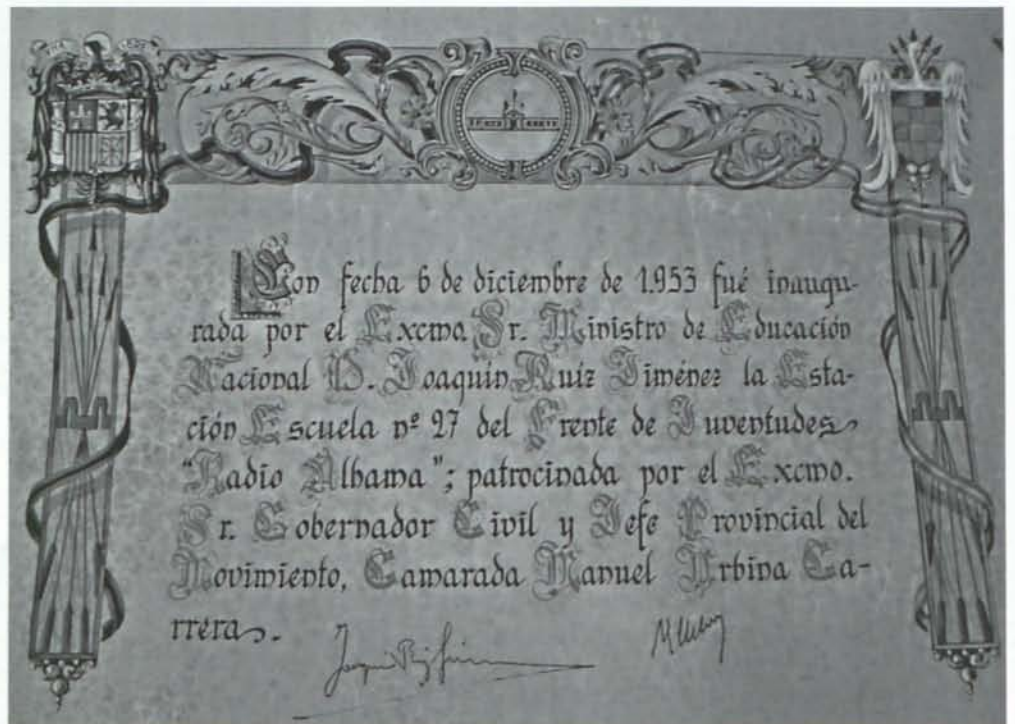 Con fecha 6 de diciembre de 1.953 fué inaugu-
rada por el Excmo. Sr. Ministro de Educación
Nacional D. Joaquin Ruiz Jiménez la Esta-
ción Escuela nº 27 del Frente de Juventudes
"Radio Alhama"; patrocinada por el Excmo.
Sr. Gobernador Civil y Jefe Provincial del
Movimiento, Camarada Manuel Urbina Ca-
rrera.